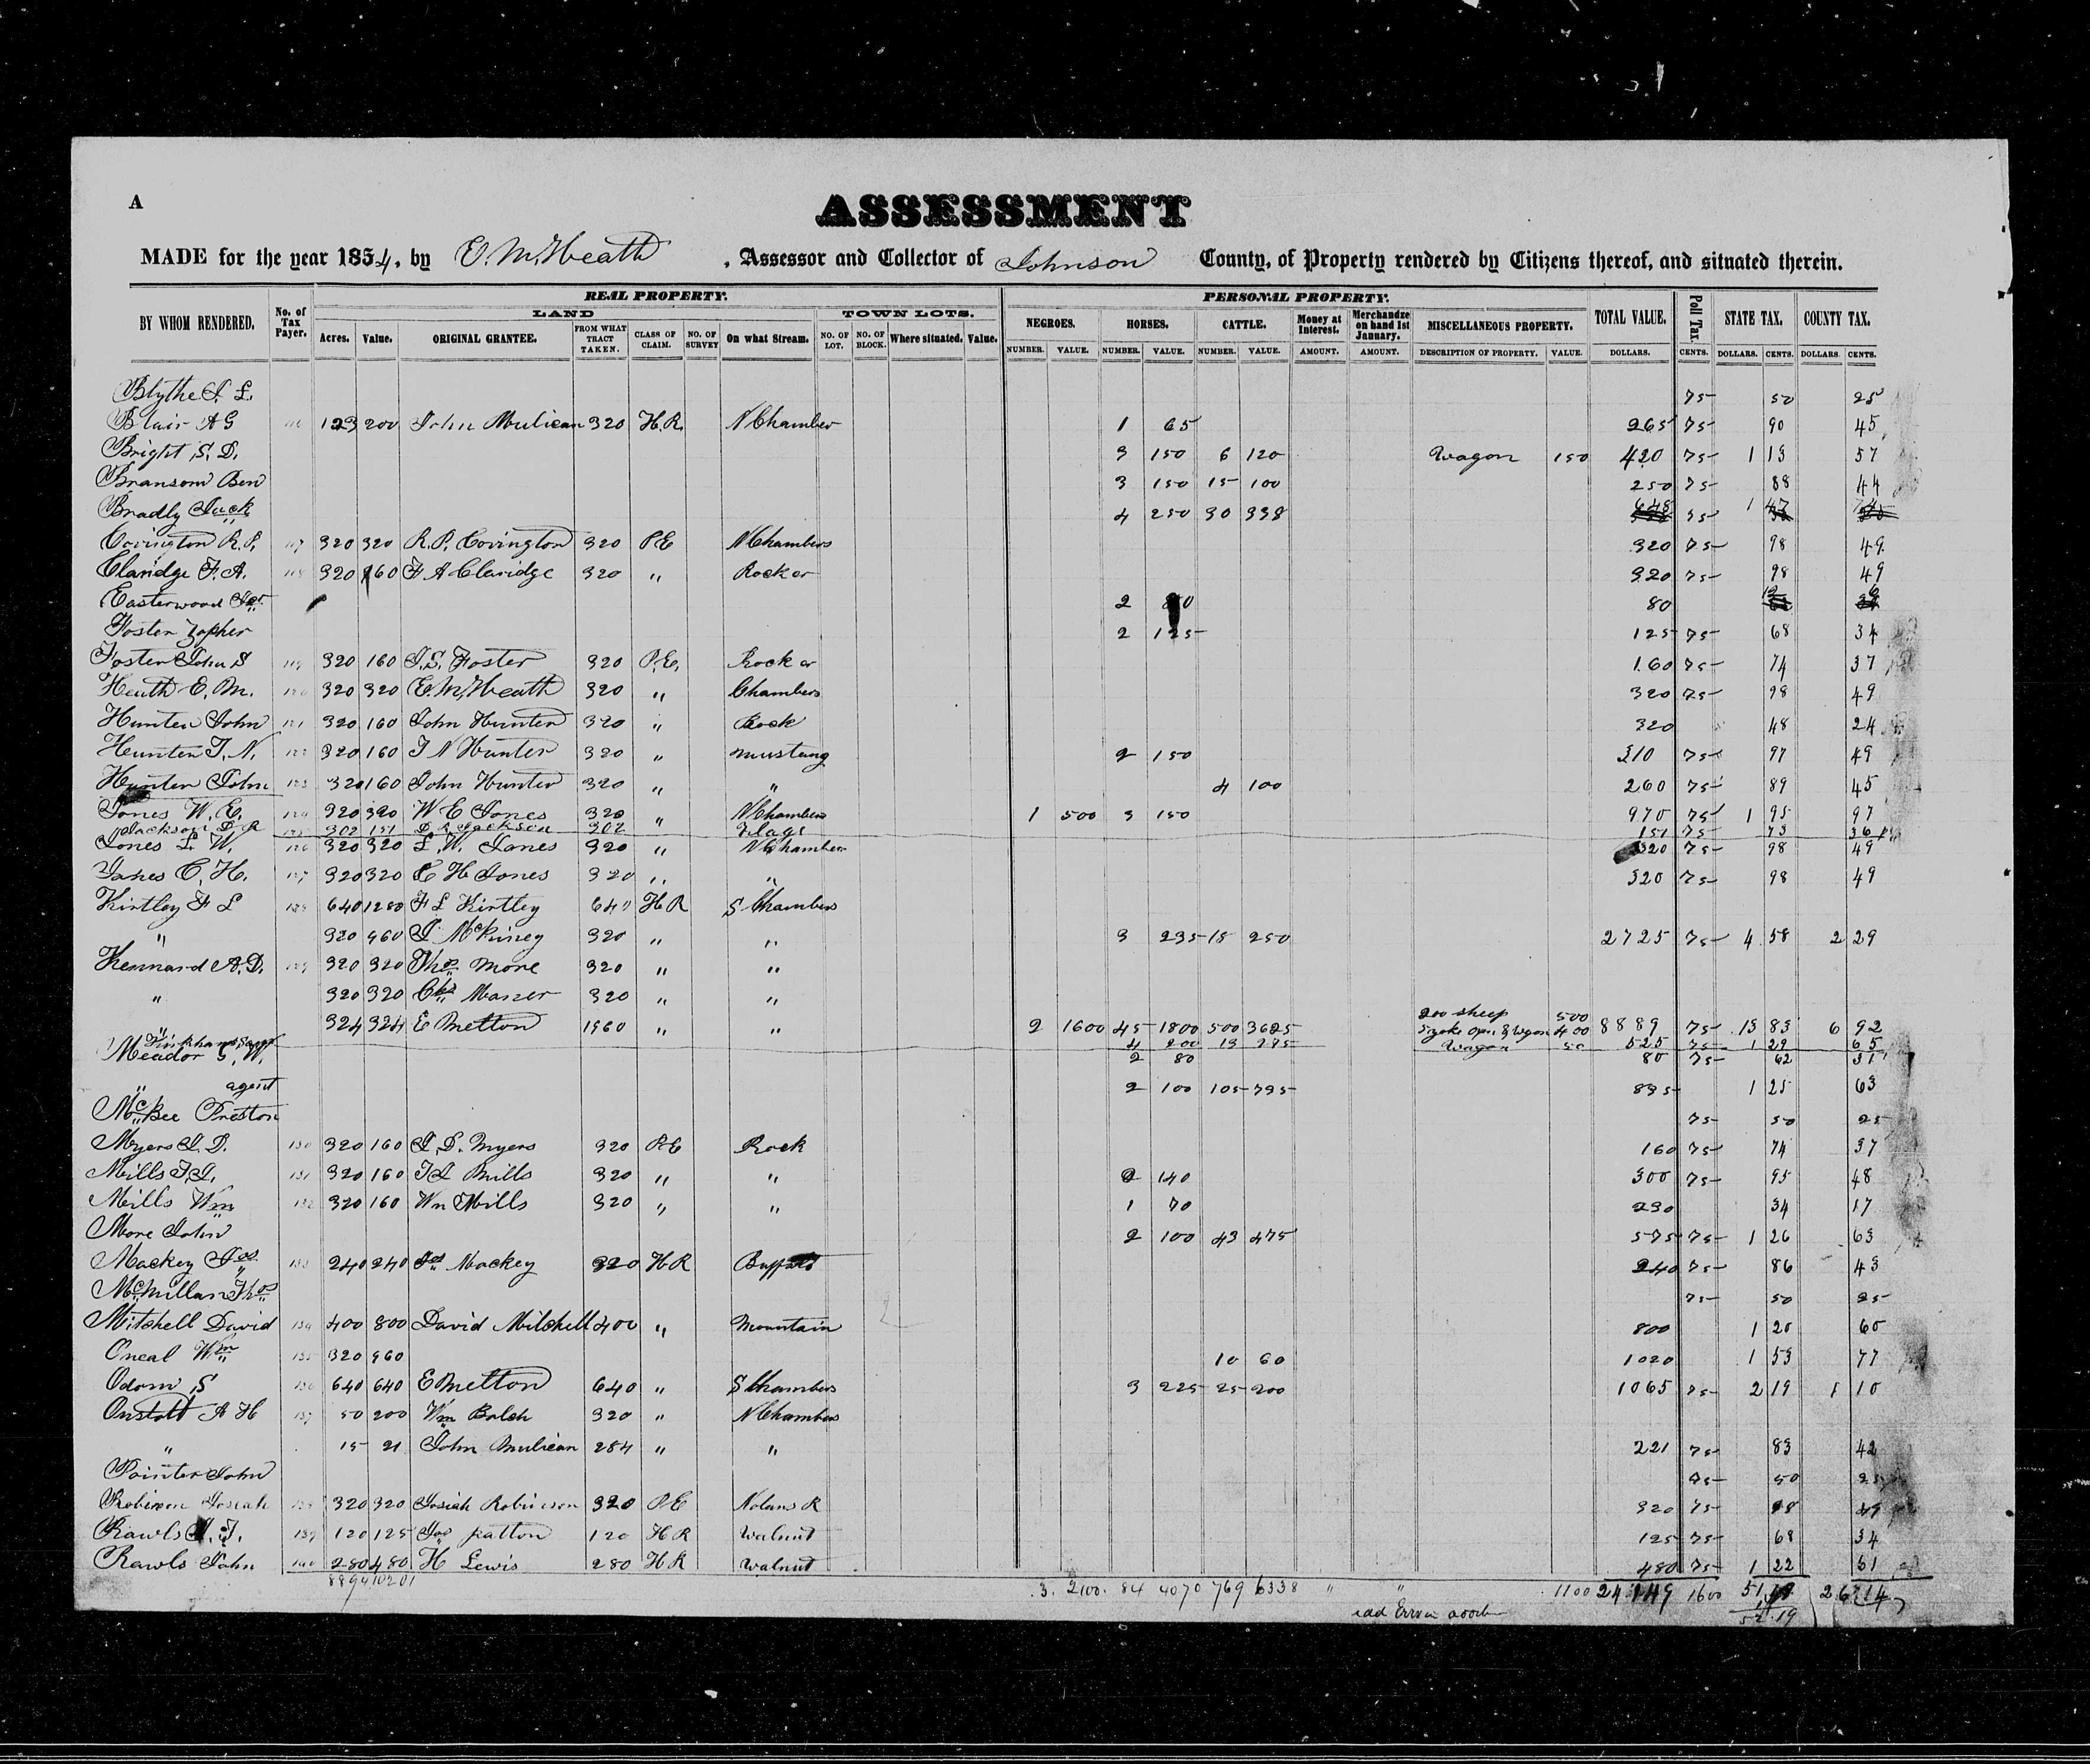 A
ASSESSMENT
MADE for the year 1854, by E. M. Heath, Assessor and Collector of Johnson County, of Property rendered by Citizens thereof, and situated therein.
REAL PROPERTY. PERSONAL PROPERTY.
BY WHOM RENDERED. No. of Tax Payer. LAND TOWN LOTS. NEGROES. HORSES. CATTLE. Money at Interest. Merchandze on hand 1st January. MISCELLANEOUS PROPERTY. TOTAL VALUE. Poll Tax. STATE TAX. COUNTY TAX.
Acres. Value. ORIGINAL GRANTEE. FROM WHAT TRACT TAKEN. CLASS OF CLAIM. NO. OF SURVEY On what Stream. NO. OF LOT. NO. OF BLOCK. Where situated. Value. NUMBER. VALUE. NUMBER. VALUE. NUMBER. VALUE. AMOUNT. AMOUNT. DESCRIPTION OF PROPERTY. VALUE. DOLLARS. CENTS. DOLLARS. CENTS. DOLLARS. CENTS.
Blythe J. L. 75 50 25
Blair A G 116 123 200 John Mulican 320 H.R. N Chamber 1 65 265 75 90 45
Bright S. D. 3 150 6 120 Wagon 150 420 75 1 13 57
Bransom Ben 3 150 15 100 250 75 88 44
Bradly Jack 4 250 30 398 648 75 1 47
Covington R.P. 117 320 320 R.P. Covington 320 P.E N Chambers 320 75 98 49
Claridge F. A. 118 320 160 F A Claridge 320 " Rock cr 320 75 98 49
Easterwood 2 80 80 12
Foster Zopher 2 125 125 75 68 34
Foster John S 119 320 160 J. S. Foster 320 P.E. Rock cr 160 75 74 37
Heath E. M. 120 320 320 E. M. Heath 320 " Chambers 320 75 98 49
Hunter John 121 320 160 John Hunter 320 " Rock 320 48 24
Hunter T. N. 122 320 160 T N Hunter 320 " Mustang 2 150 310 75 97 49
Hunter John 123 320 160 John Hunter 320 " " 4 100 260 75 89 45
Jones W. E. 124 320 320 W E Jones 320 " N Chambers 1 500 3 150 970 75 1 95 97
Jackson D R 125 302 151 D R Jackson 302 151 75 73 36
Jones L. W. 126 320 320 L. W. Jones 320 " N Chamber 320 75 98 49
Jones C. H. 127 320 320 C H Jones 320 " " 320 75 98 49
Kirtley F L 128 640 1280 F L Kirtley 640 H R S Chambers
" 320 960 J. McKiney 320 " " 3 235 18 250 2725 75 4 58 2 29
Kennard A. D. 129 320 320 Thos More 320 " "
" 320 320 Chs Manser 320 " " 200 sheep 500
" 324 324 E Melton 1960 " " 2 1600 45 1800 500 3625 5 yoke Oxen & Wagon 400 8889 75 13 83 6 92
4 200 13 275 Wagon 50 525 75 1 29 65
Meador S. W. 2 80 80 75 62 31
" agent 2 100 105 735 835 1 25 63
McBee Preston 75 50 25
Myers J. D. 130 320 160 J. D. Myers 320 P.E Rock 160 75 74 37
Mills F. J. 131 320 160 Mills 320 " " 2 140 300 75 95 48
Mills Wm 132 320 160 Wm Mills 320 " " 1 70 230 34 17
More John 2 100 43 475 575 75 1 26 63
Mackey Jas 133 240 240 Jas Mackey 320 H R Buffalo 240 75 86 43
McMillan Thos 75 50 25
Mitchell David 134 400 800 David Mitchell 400 " Mountain 800 1 20 60
Oneal Wm 135 320 960 10 60 1020 1 53 77
Odom S 136 640 640 E Melton 640 " S Chambers 3 225 25 200 1065 75 2 19 1 10
Onstott A H 137 50 200 Wm Balch 320 " N Chambers
" 15 21 John Mulican 284 " " 221 75 83 42
Pointer John 75 50 25
Robinson Josiah 138 320 320 Josiah Robinson 320 P.E Nolans R 320 75 98 49
Rawls 139 120 125 Jas Patton 120 H R Walnut 125 75 68 34
Rawls John 140 280 480 H Lewis 280 H R Walnut 480 75 1 22 61
8894 10201 3 2100 84 4070 769 6338 " " 1100 24149 1600
add Error 52.19